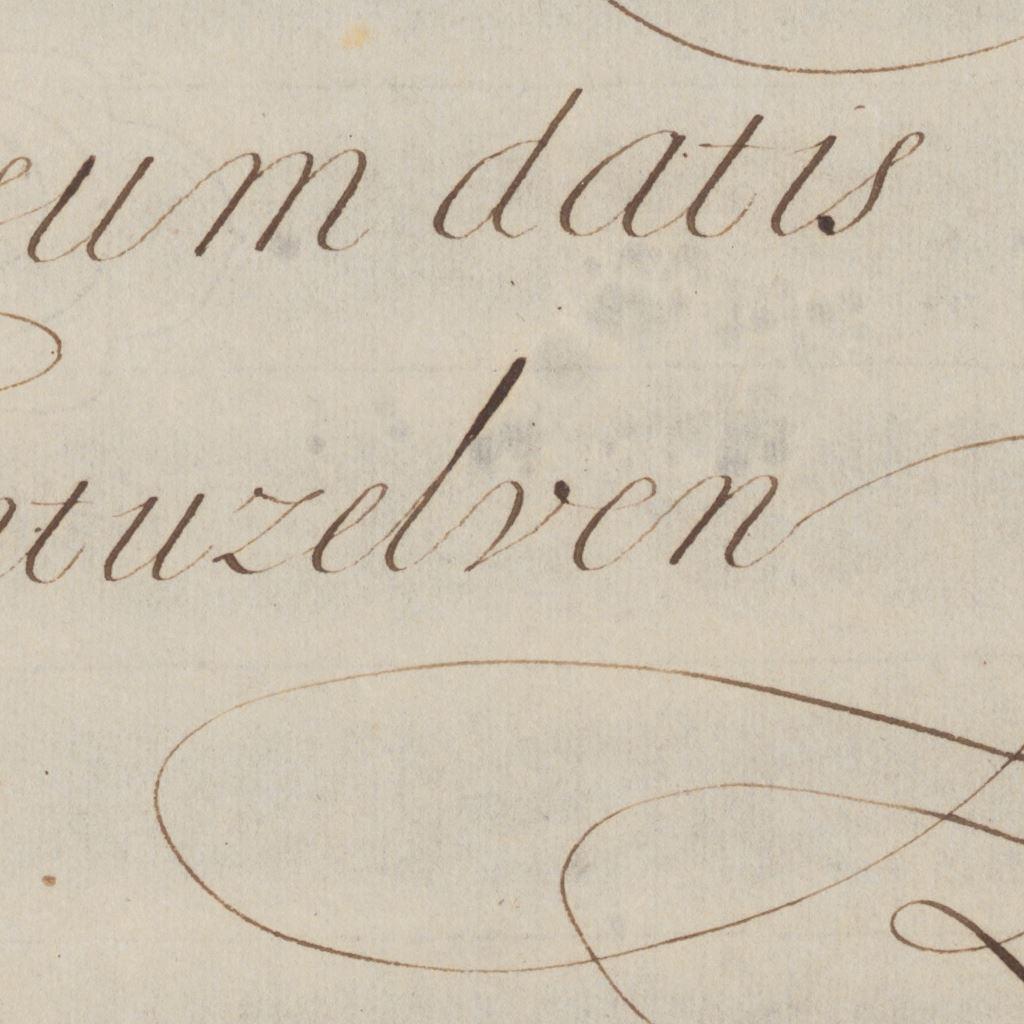 eum datis
ntuzelven